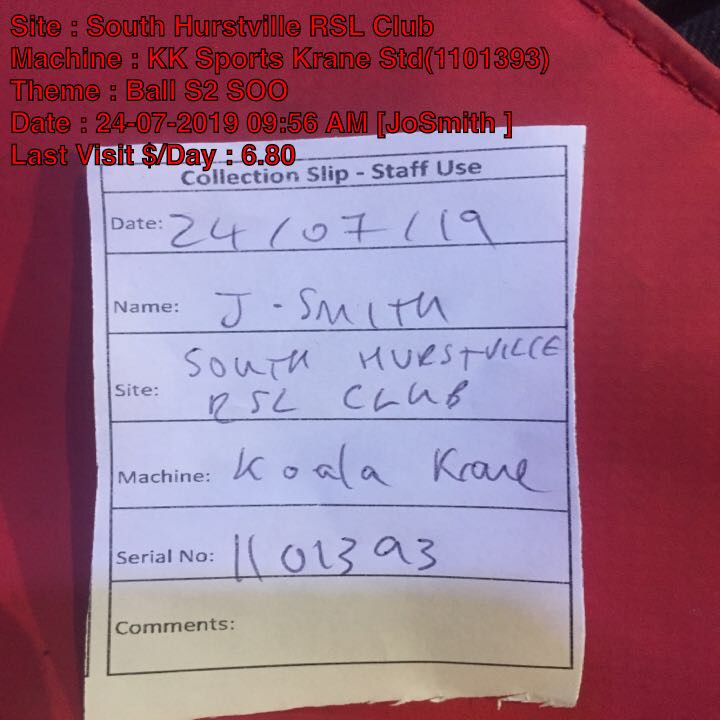 Site : South Hurstville RSL Club
Machine : KK Sports Krane Std(1101393)
Theme : Ball S2 SOO
Date : 24-07-2019 09:56 AM [JoSmith ]
Last Visit $/Day : 6.80
Collection Slip - Staff Use
Date: 24/07/19
Name: J-SMITH
SOUTH HURSTVILLE
Site: RSL CLUB
Machine: Koala Krane
Serial No: 1101393
Comments: